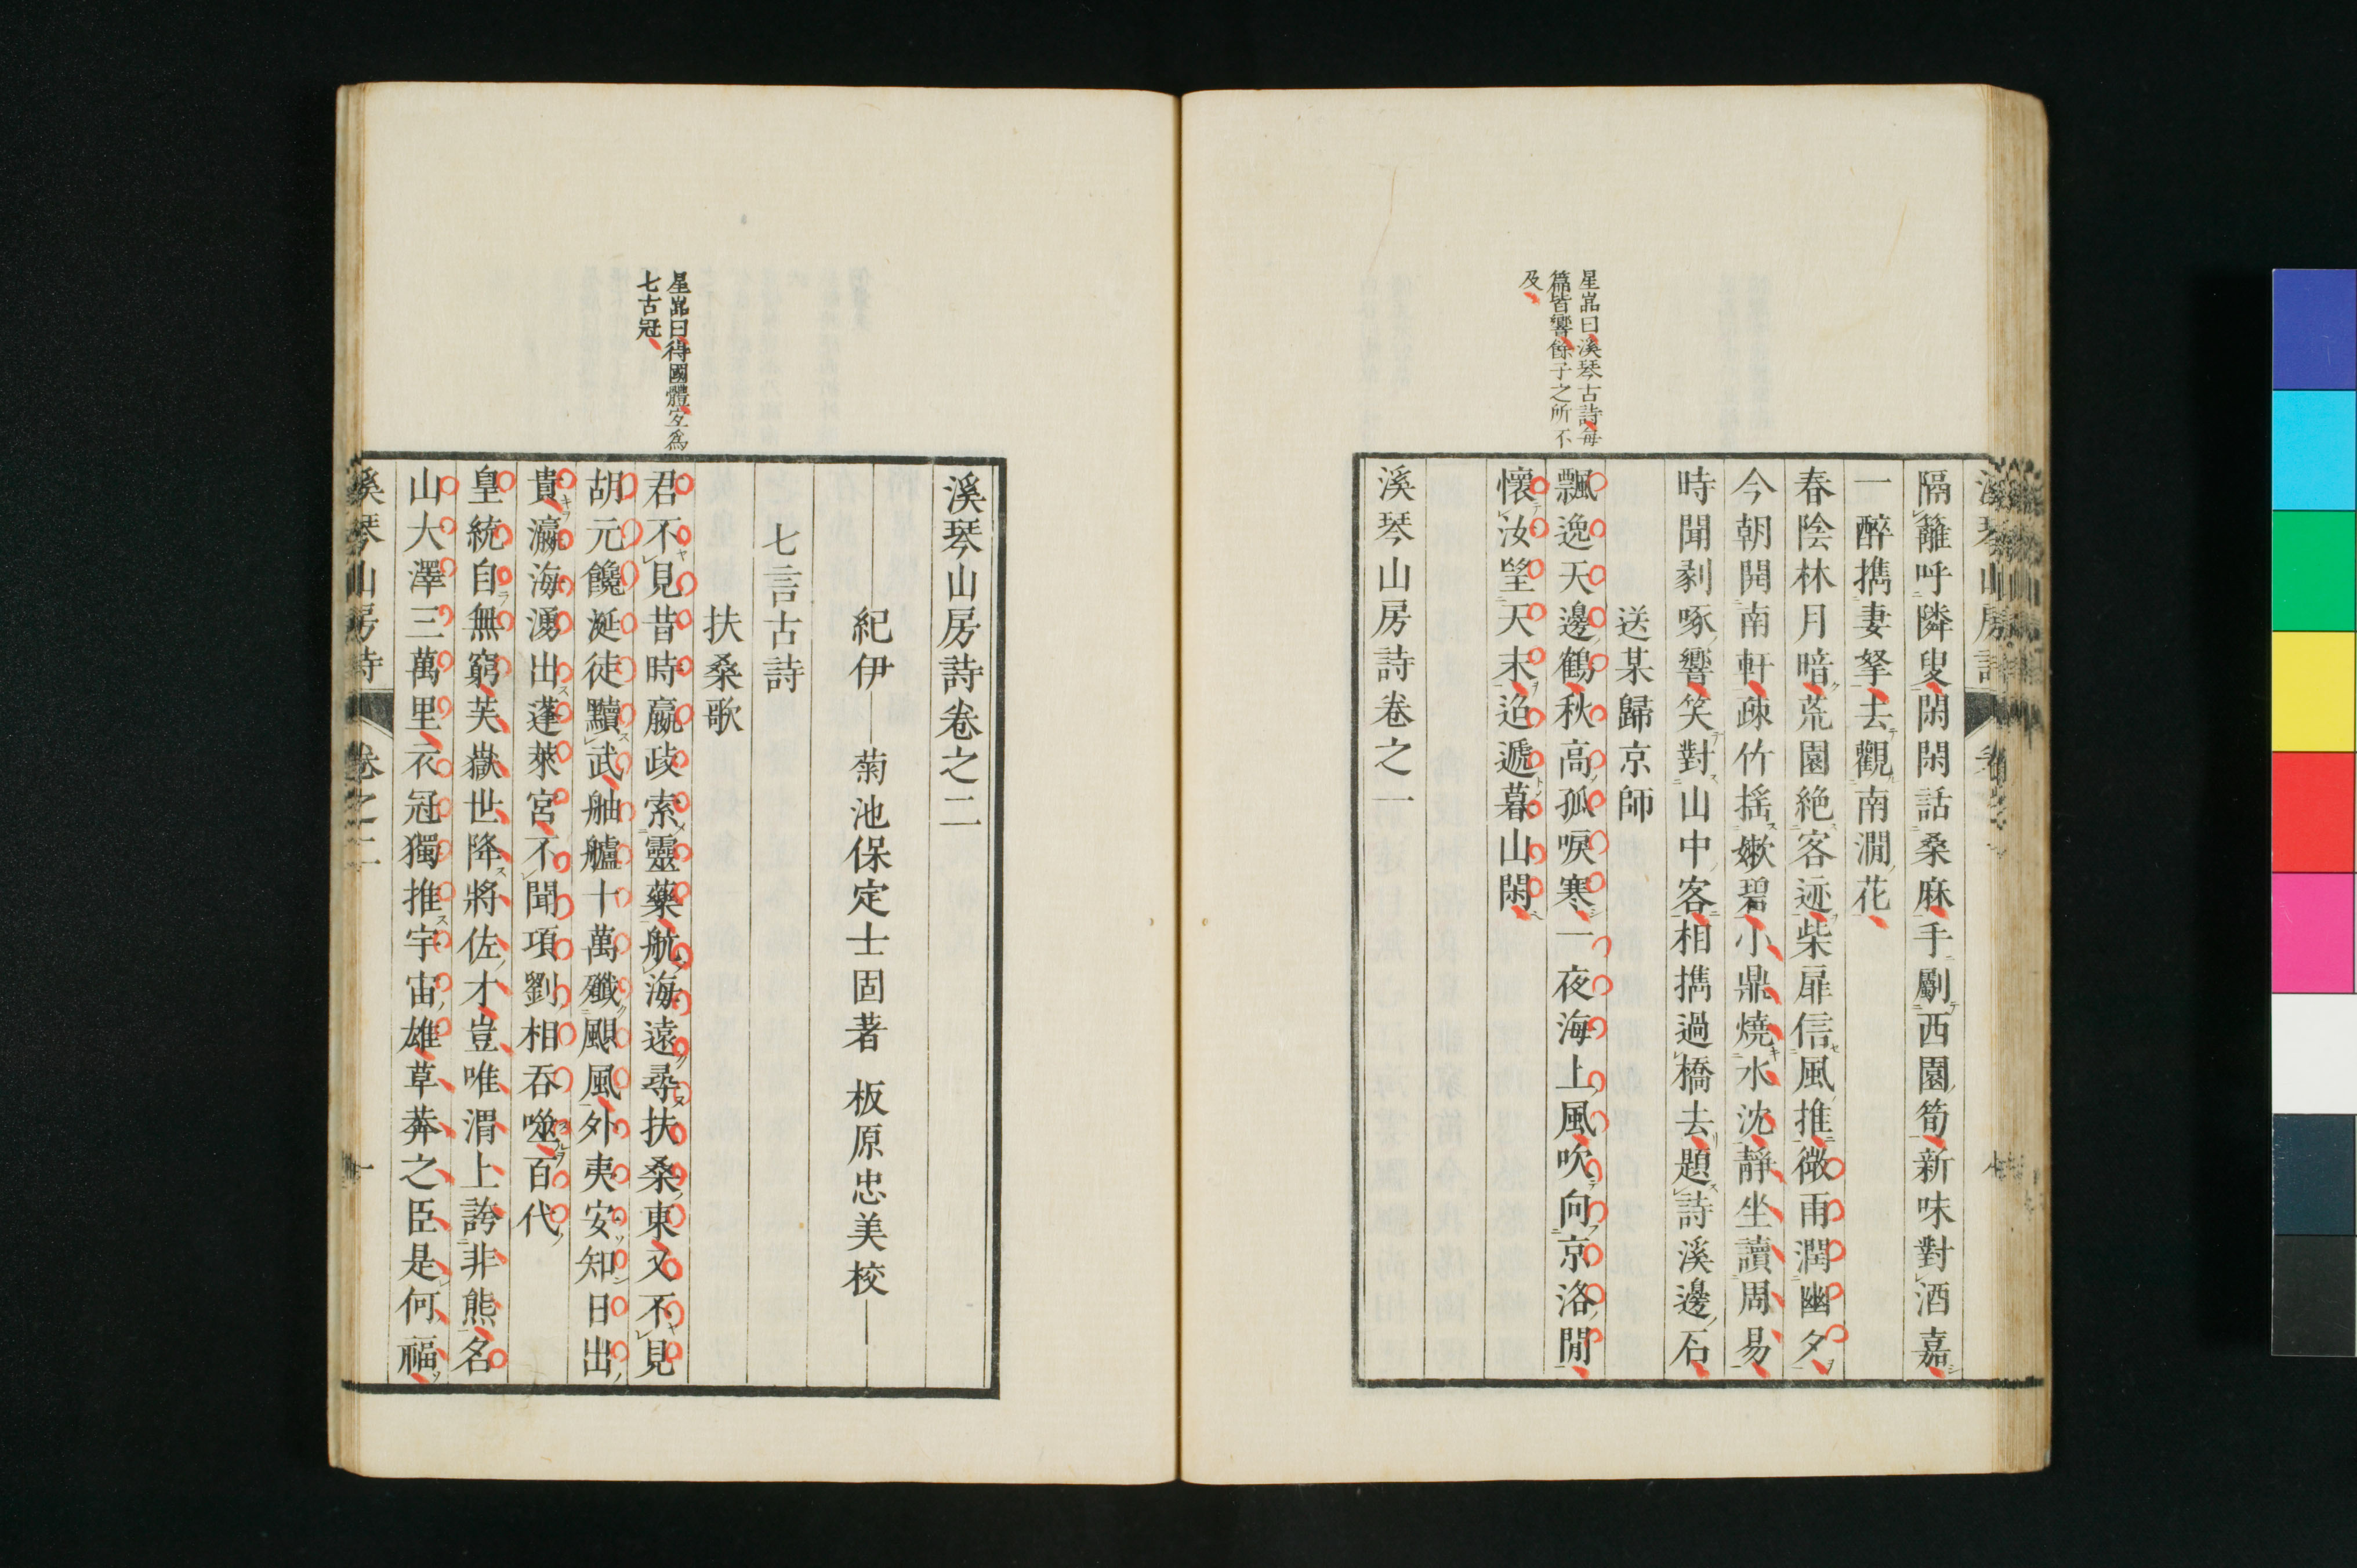 隔籬呼隣叟閑閑話桑麻手劚西園筍新味對酒嘉
一醉擕妻孥去觀南澗花
春陰林月暗荒園絶客迹柴扉信風推微雨潤幽夕
今朝開南軒疎竹揺嫩碧小鼎燒水沈靜坐讀周易
時聞剥啄響笑對山中客相擕過橋去題詩溪邊石
送某歸京師
星巖曰溪琴古詩每
篇皆響餘子之所不
及
飄逸天邊鶴秋高孤唳寒一夜海上風吹向京洛間
懷汝望天末迢遞暮山閑
溪琴山房詩卷之一
溪琴山房詩卷之二
紀伊 菊池保定士固著 板原忠美校
七言古詩
扶桑歌
星巖曰得國體宜爲
七古冠
君不見昔時嬴政索靈藥航海遠尋扶桑東又不見
胡元饞涎徒黷武舳艫十萬殲颶風外夷安知日出
貴瀛海湧出蓬萊宮不聞項劉相呑噬百代
皇統自無窮芙嶽世降將佐才豈唯渭上誇非熊名
山大澤三萬里衣冠獨推宇宙雄草莽之臣是何福
溪琴山房詩 卷之二 一